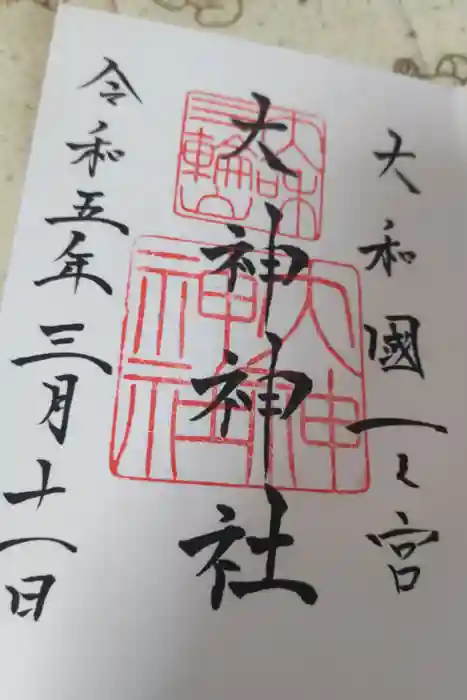 大和國一之宮
大神神社
令和五年三月十八日
大神神社